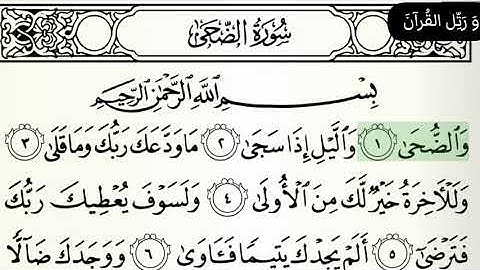 و رَتِّلِ القُرآنَ
سُورَةُ الضُّحَىٰ
بِسْمِ ٱللَّهِ ٱلرَّحْمَٰنِ ٱلرَّحِيمِ
وَٱلضُّحَىٰ ١ وَٱلَّيْلِ إِذَا سَجَىٰ ٢ مَا وَدَّعَكَ رَبُّكَ وَمَا قَلَىٰ ٣
وَلَلْأَخِرَةُ خَيْرٌ لَّكَ مِنَ ٱلْأُولَىٰ ٤ وَلَسَوْفَ يُعْطِيكَ رَبُّكَ
فَتَرْضَىٰ ٥ أَلَمْ يَجِدْكَ يَتِيمًا فَـَٔاوَىٰ ٦ وَوَجَدَكَ ضَآلًّا